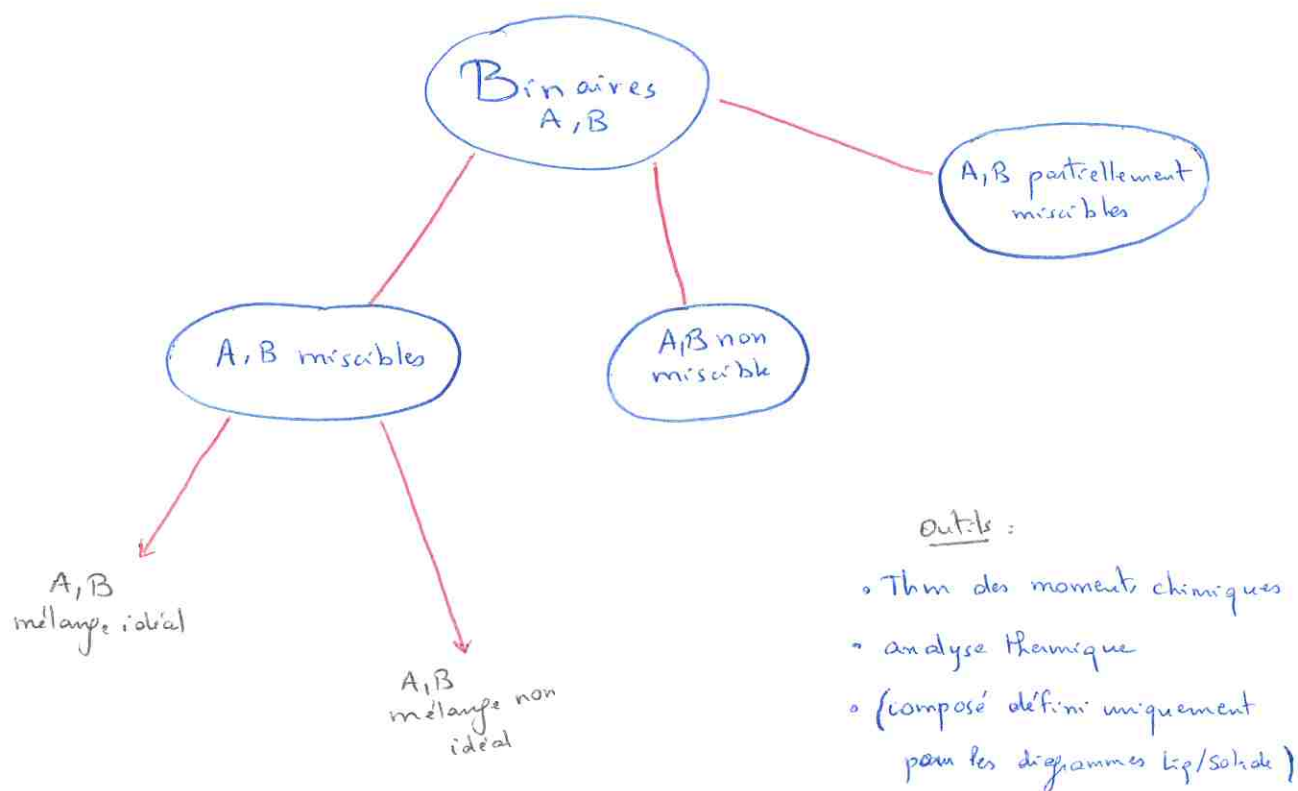 Binaires
A, B
A, B partiellement
miscibles
A, B miscibles
A, B non
miscible
A, B
mélange idéal
A, B
mélange non
idéal
Outils :
• Thm des moments chimiques
• analyse thermique
• (composé défini uniquement
pour les diagrammes Liq/Solide)